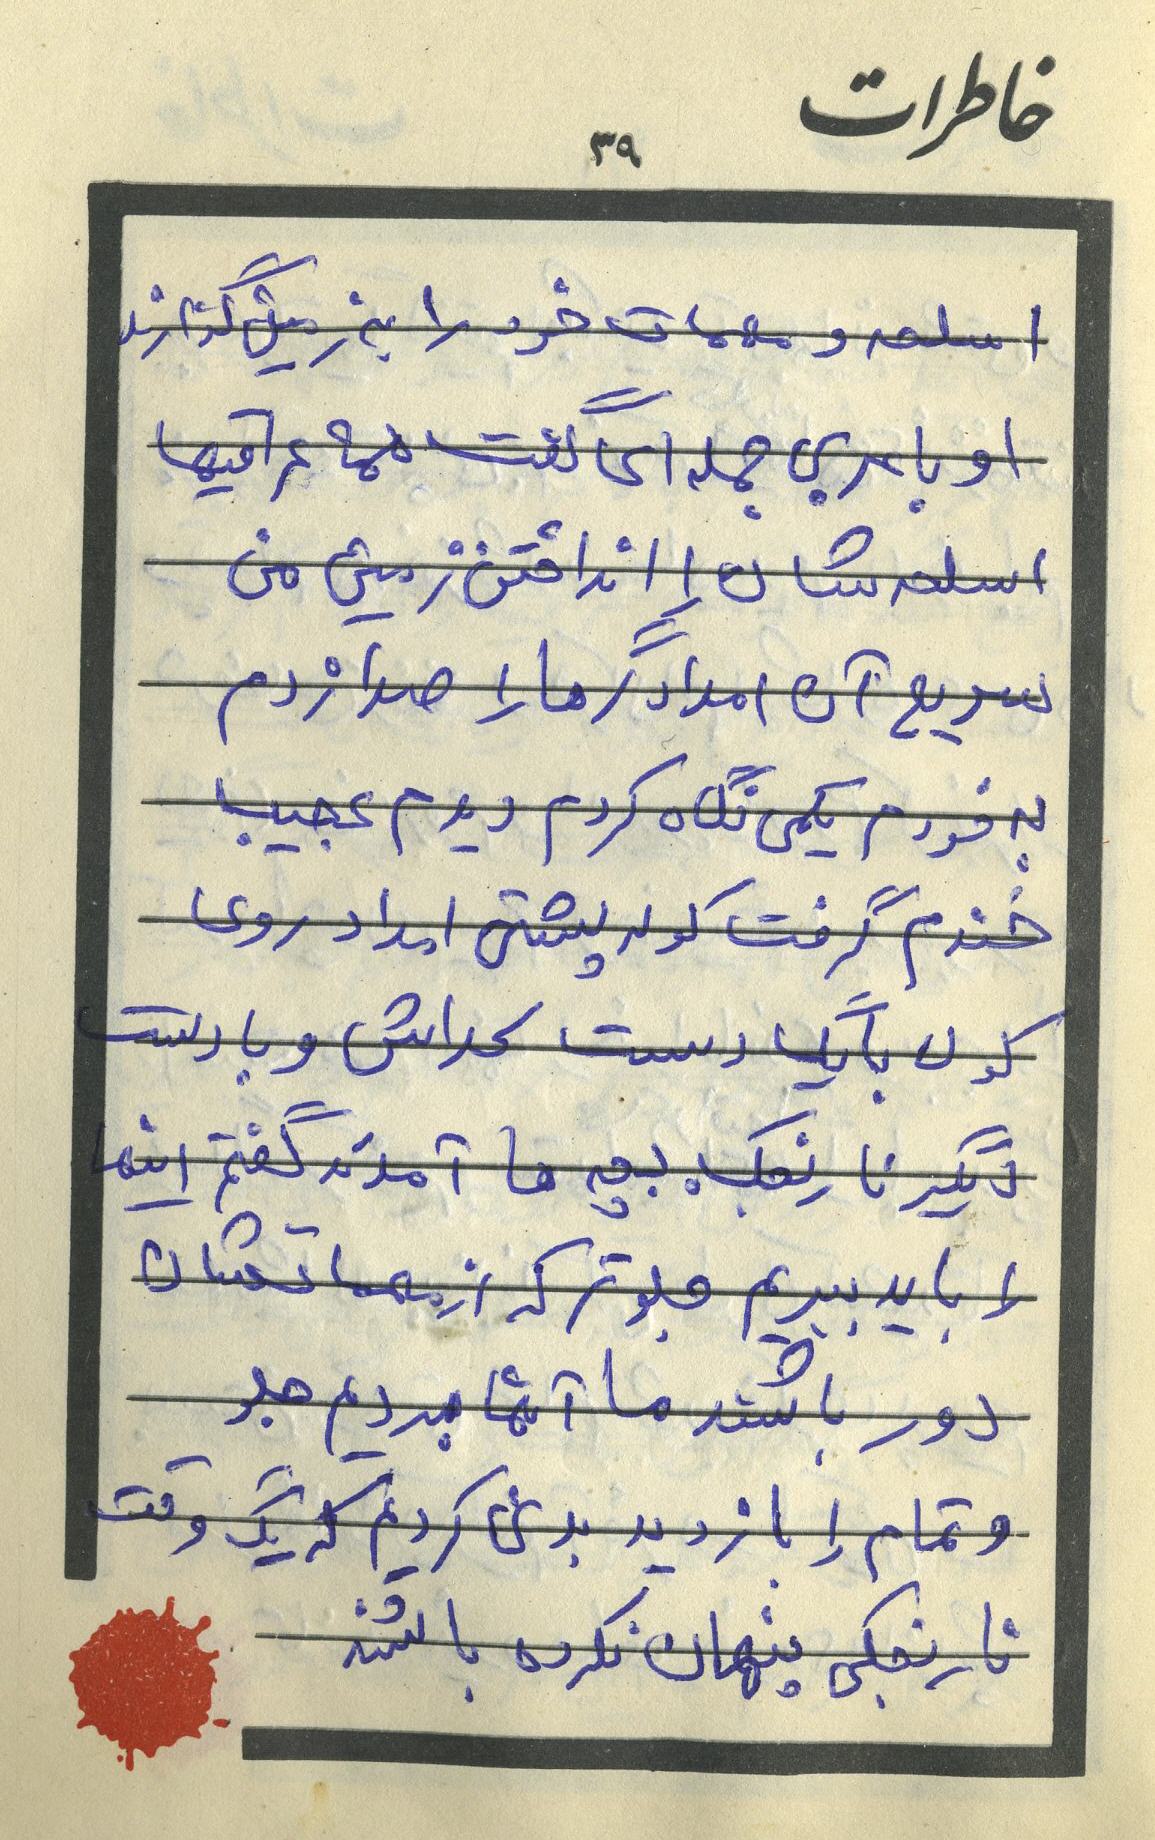 خاطرات
۳۹
اسلحه و مهمات خود را به زمین گذارند
او با عربی جمله ای گفت همه عراقیها
اسلحه شان را انداختن زمین من
سریع آن امدادگرها را صدا زدم
به خودم یکمی نگاه کردم دیدم عجیب
خندم گرفت کوله پشتی امداد روی
کول با یک دست و با دست
دیگر نارنجک. بچه ها آمدند گفتم اینها
را باید ببریم جلوتر که از مهماتشان
دور باشند ما آنها بردیم جلو
و تمام را بازدید بدنی کردیم که یک وقت
نارنجکی پنهان نکرده باشند